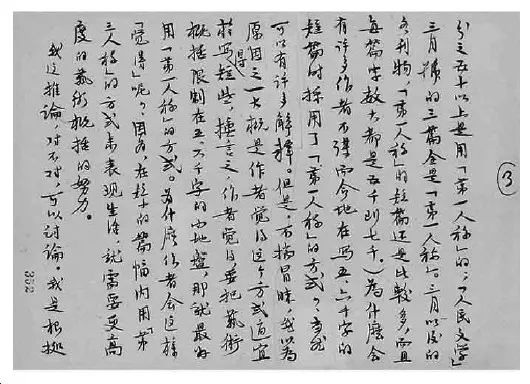 分之五十以上是用「第一人称」的；「人民文学」
三月号的三篇全是「第一人称」。三月以后的
各刊物，「第一人称」的短篇还是比较多，而且
每篇字数大都是五千到七千。）为什麽会
有许多作者不谋而合地在写五、六千字的
短篇时採用了「第一人称」的方式？当然
可以有许多解释。但是，不揣冒昧，我以为
原因之一大概是作者觉得这个方式适宜
於写得短些；换言之，作者觉得要把艺术
概括限制在五、六千字的小地盘，那就最好
用「第一人称」的方式。为什麽作者会这样
「觉得」呢？因为，在短小的篇幅内用「第
三人称」的方式来表现生活，就需要更高
度的艺术概括的努力。
我这推论，对不对，可以讨论。我是根据
3
352